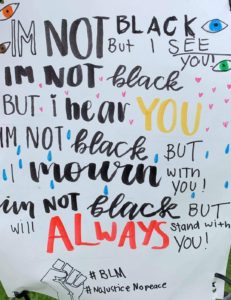 IM NOT BLACK
BUT I SEE
YOU!
IM NOT black
BUT i hear YOU
IM NOT black, BUT
I mourn with
YOU!
im NOT black BUT
will ALWAYS stand with
YOU!
# BLM
# NoJustice No peace